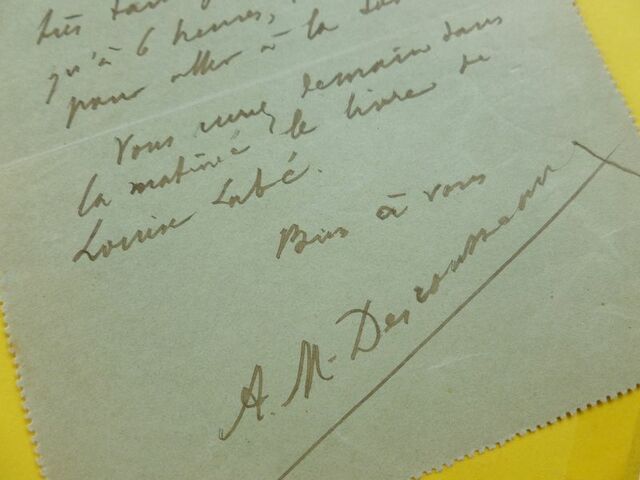 très tard
qu'à 6 heures,
pour aller à la
Vous aurez demain dans
la matinée, le livre de
Louise Labé.
Bien à vous
A. M. Desrousseaux